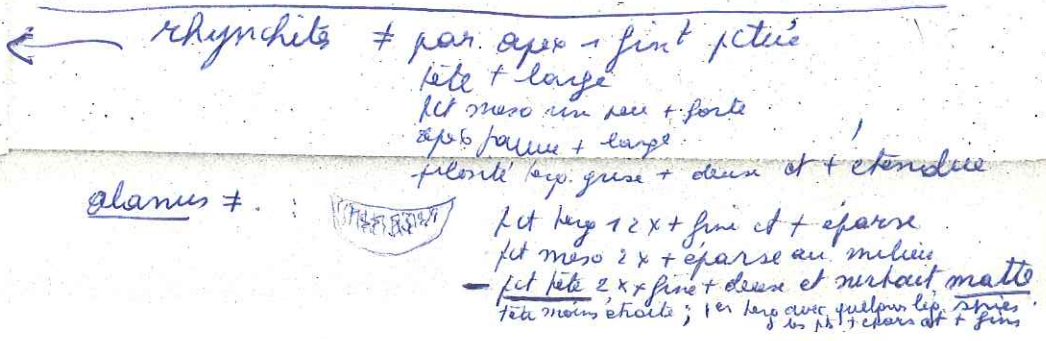 rhynchites ≠ par. apex 1 fint pctué
tête + large
pct meso un peu + forte
après jaune + large
pilosité terg. grise + dense et + étendue
alanus ≠ :
pct terg 1 2 x + fine et + éparse
pct meso 2 x + éparse au milieu
- pct tête 2 x + fine + dense et surtout matte
tête moins étroite ; 1er terg avec quelques
+ épars et + fins